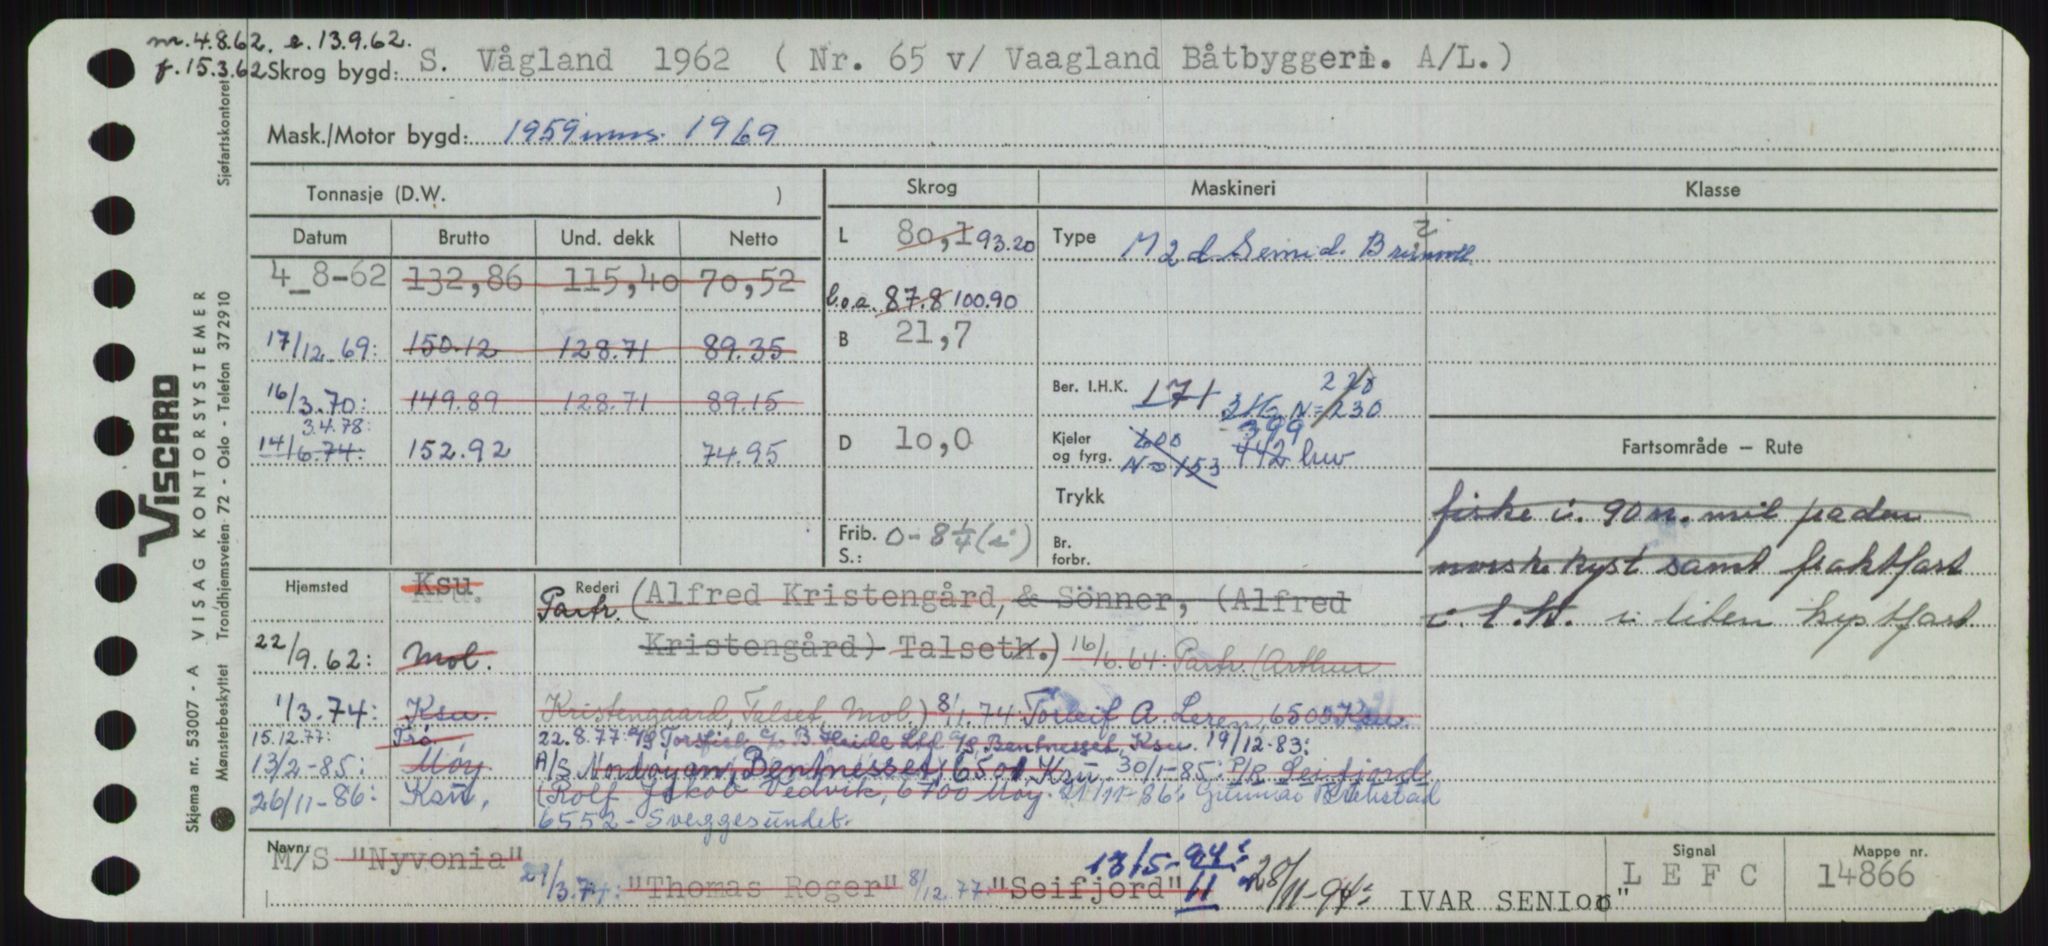 m. 4.8.62. e. 13.9.62.
f. 15.3.62 Skrog bygd: S. Vågland 1962 ( Nr. 65 v/ Vaagland Båtbyggeri. A/L.)
Mask./Motor bygd: 1959 mms. 1969
Tonnasje (D.W. ) Skrog Maskineri Klasse
Datum Brutto Und. dekk Netto L 80,1 93.20 Type M 2 d Semi d. Brunvoll
4_8-62 132,86 115,40 70,52 l.o.a. 87.8 100.90
17/12.69: 150.12 128.71 89.35 B 21,7
16/3.70: 149.89 128.71 89.15 Ber. I.H.K. 171 3 kg N=230 220
3.4.78:
14/6.74: 152.92 74.95 D 10,0 Kjeler og fyrg. 600 N=153 399 442 Fartsområde – Rute
Trykk fiske i. 90 n. mil fra den
Frib. S.: 0-8 1/4 (i) Br. forbr. norske kyst samt fraktfart
Hjemsted Ksu Rederi Partr. (Alfred Kristengård, & Sönner, (Alfred i liten kystfart
22/9.62: Mol. Kristengård) Talseth.) 16/6.64: Partr. (Arthur
1/3.74: Ksu. Kristengaard, Talset, Mol.) 8/1.74 Torleif A. Leren, 6500 Ksu.
15.12.77: Trö, 22.8.77: A/S B. Heide Ltd A/S, Bentnesset, Ksu. 19/12-83:
13/2-85: Möy A/S Nordöyan, Bentnesset, 6501 Ksu. 30/1-85: P/R Seifjord
26/11-86: Ksu, (Rolf Jakob Vedvik, 6700 Måöy. 21/11-86: Gunnar
6552 - Sveggesundet.
Navn: M/S "Nyvonia" 13/5-94: Signal Mappe nr.
29/3.74: "Thomas Roger" 8/12.77: "Seifjord" 11 28/11-94: IVAR SENIor" L E F C 14866
VISCARD
VISAG KONTORSYSTEMER
Skjema nr. 53007 - A
Mønsterbeskyttet Trondhjemsveien 72 - Oslo - Telefon 372910
Sjøfartskontoret